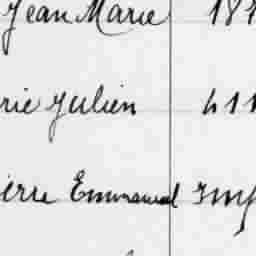 Jean Marie
rie Julien 411
ierre Emmanuel